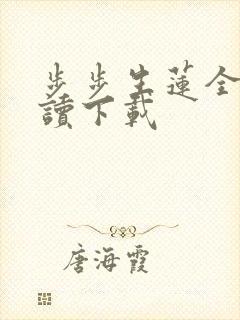 步步生蓮全
讀下載
唐海霞